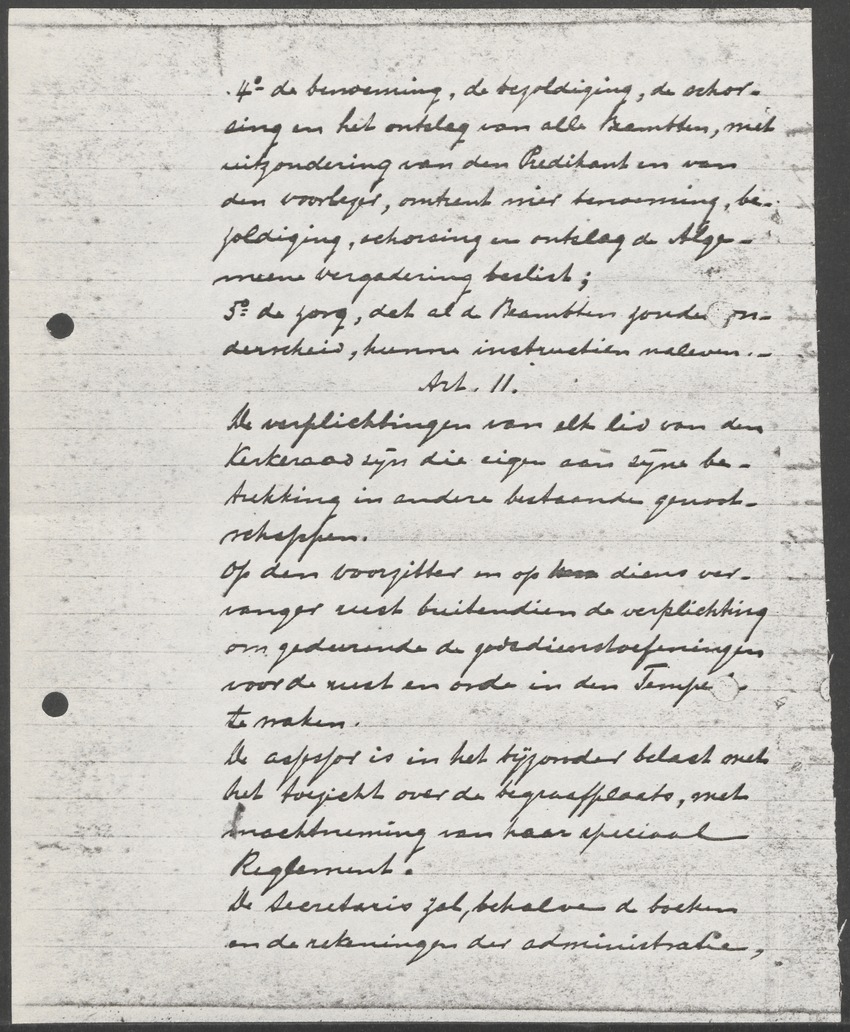 4º de benoeming, de bezoldiging, de schor-
sing en het ontslag van alle Beambten, met
uitzondering van den Predikant en van
den voorlezer, omtrent wier benoeming, be-
zoldiging, schorsing en ontslag de Alge-
meene vergadering beslist;
5º de zorg, dat al de Beambten zonder on-
derscheid, hunne instructiën naleven.-
Art. 11.
De verplichtingen van elk lid van den
Kerkeraad zijn die eigen aan zijne be-
trekking in andere bestaande genoot-
schappen.
Op den voorzitter en op diens ver-
vanger rust buitendien de verplichting
om gedurende de godsdienstoefeningen
voor de rust en orde in den Tempel
te waken.
De assessor is in het bijzonder belast met
het toezicht over de begraafplaats, met
inachtneming van haar speciaal
Reglement.
De Secretaris zal, behalve de boeken
en de rekeningen der administratie,